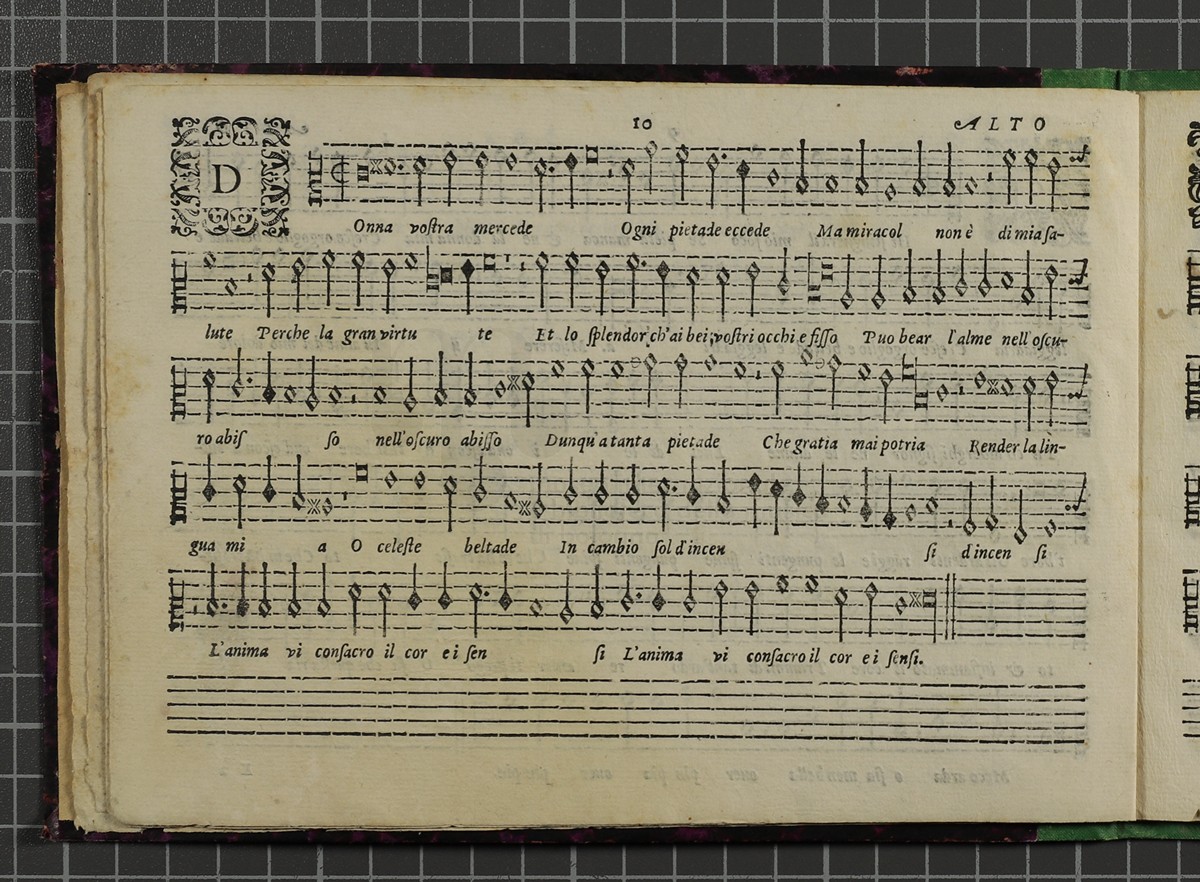 10 ALTO
DOnna vostra mercede Ogni pietade eccede Ma miracol non è di mia sa-
lute Perche la gran virtu te Et lo splendor ch'ai bei vostri occhi e fisso Puo bear l'alme nell'oscu-
ro abis so nell'oscuro abisso Dunqu'a tanta pietade Che gratia mai potria Render la lin-
gua mi a O celeste beltade In cambio sol d'incen si d'incen si
L'anima vi consacro il cor e i sen si L'anima vi consacro il cor e i sensi.